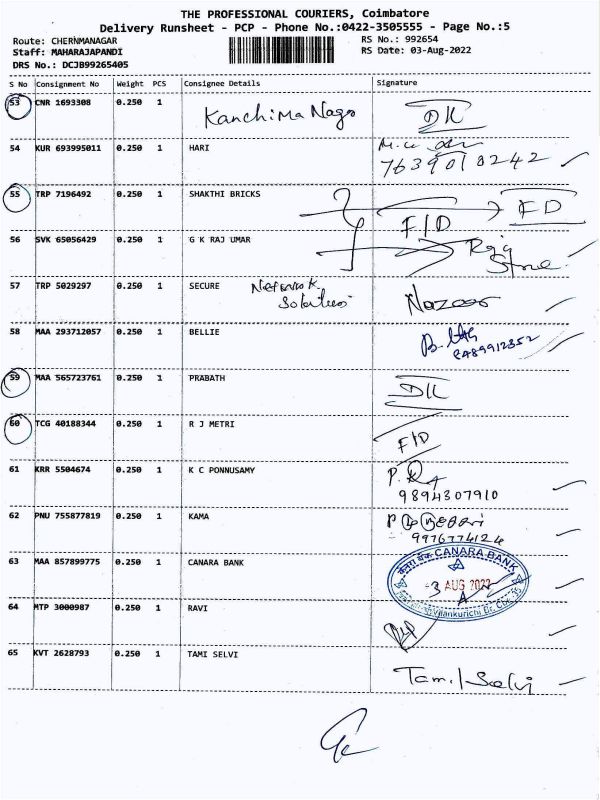 THE PROFESSIONAL COURIERS, Coimbatore
Delivery Runsheet - PCP - Phone No.:0422-3505555 - Page No.:5
Route: CHERNMANAGAR RS No.: 992654
Staff: MAHARAJAPANDI RS Date: 03-Aug-2022
DRS No.: DCJB99265405
S No Consignment No Weight PCS Consignee Details Signature
53 CNR 1693308 0.250 1 Kanchima Nagar DK
54 KUR 693995011 0.250 1 HARI
7639018242
55 TRP 7196492 0.250 1 SHAKTHI BRICKS FD
F/D
56 SVK 65056429 0.250 1 G K RAJ UMAR Raja
Store
57 TRP 5029297 0.250 1 SECURE Network Nazeer
58 MAA 293712057 0.250 1 BELLIE
8489912352
59 MAA 565723761 0.250 1 PRABATH DK
60 TCG 40188344 0.250 1 R J METRI F/D
61 KRR 5504674 0.250 1 K C PONNUSAMY
9894307910
62 PNU 755877819 0.250 1 KAMA
9976774124
63 MAA 857899775 0.250 1 CANARA BANK CANARA BANK
-3 AUG 2022
64 MTP 3000987 0.250 1 RAVI
65 KVT 2628793 0.250 1 TAMI SELVI Tamil Selvi